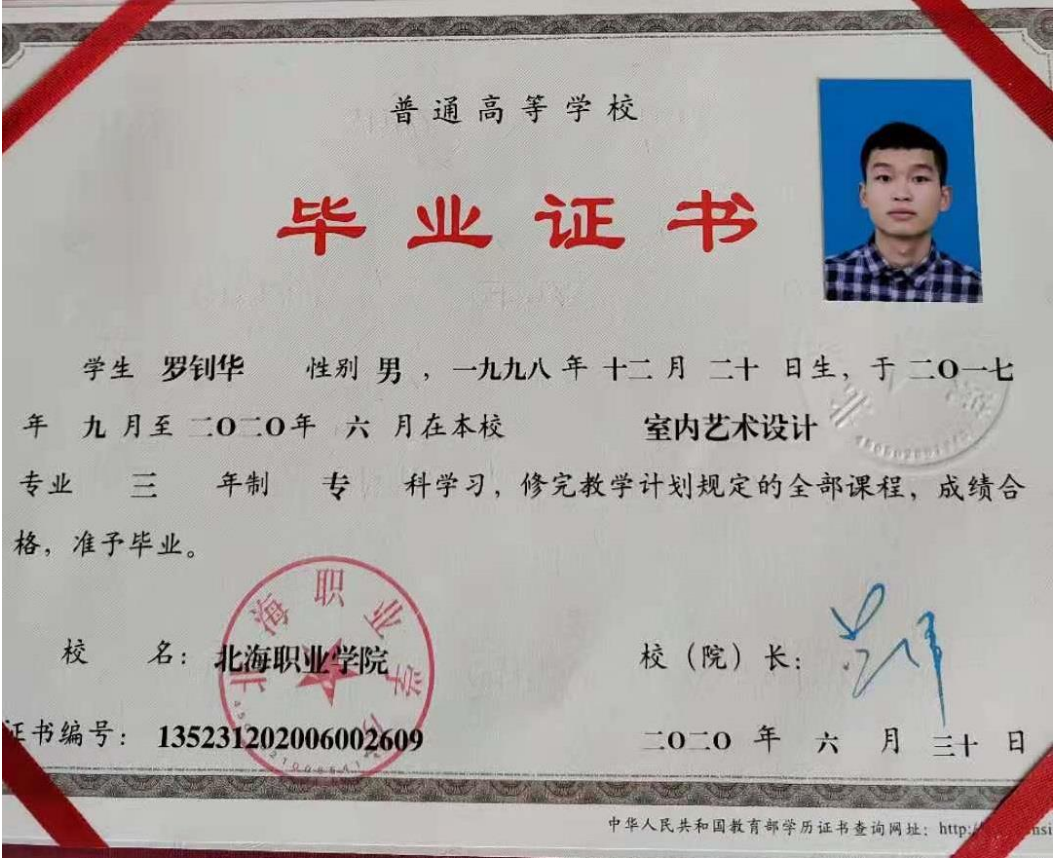 普通高等学校
毕业证书
学生 罗钊华 性别 男 ，一九九八 年 十二 月 二十 日生，于 二〇一七
年 九 月至 二〇二〇年 六 月在本校 室内艺术设计
专业 三 年制 专 科学习，修完教学计划规定的全部课程，成绩合
格，准予毕业。
北海职业学院
校 名：北海职业学院 校（院）长：
证书编号：135231202006002609 二〇二〇 年 六 月 三十 日
中华人民共和国教育部学历证书查询网址：http:/